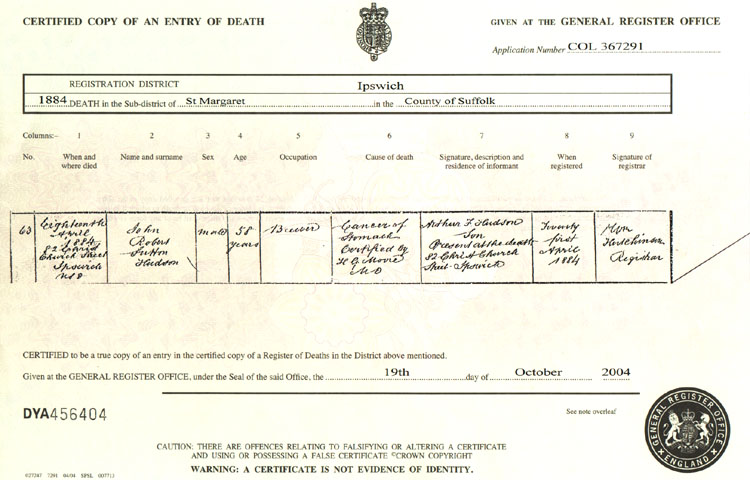 CERTIFIED COPY OF AN ENTRY OF DEATH
GIVEN AT THE GENERAL REGISTER OFFICE
Application Number COL 367291
REGISTRATION DISTRICT Ipswich
1884 DEATH in the Sub-district of St Margaret in the County of Suffolk
Columns:- 1 2 3 4 5 6 7 8 9
No. When and where died Name and surname Sex Age Occupation Cause of death Signature, description and residence of informant When registered Signature of registrar
63
Eighteenth
April
1884
82 Christ
Church Street
Ipswich
John
Robert
Sutton
Hudson
male
58
years
Brewer
Cancer of
Stomach
Certified by
MD
Arthur F Hudson
Son
Present at the death
82 Christ Church
Street Ipswich
Twenty
first
April
1884
Hutchinson
Registrar
CERTIFIED to be a true copy of an entry in the certified copy of a Register of Deaths in the District above mentioned.
Given at the GENERAL REGISTER OFFICE, under the Seal of the said Office, the 19th day of October 2004
DYA456404
See note overleaf
GENERAL REGISTER OFFICE
ENGLAND
CAUTION: THERE ARE OFFENCES RELATING TO FALSIFYING OR ALTERING A CERTIFICATE
AND USING OR POSSESSING A FALSE CERTIFICATE ©CROWN COPYRIGHT
WARNING: A CERTIFICATE IS NOT EVIDENCE OF IDENTITY.